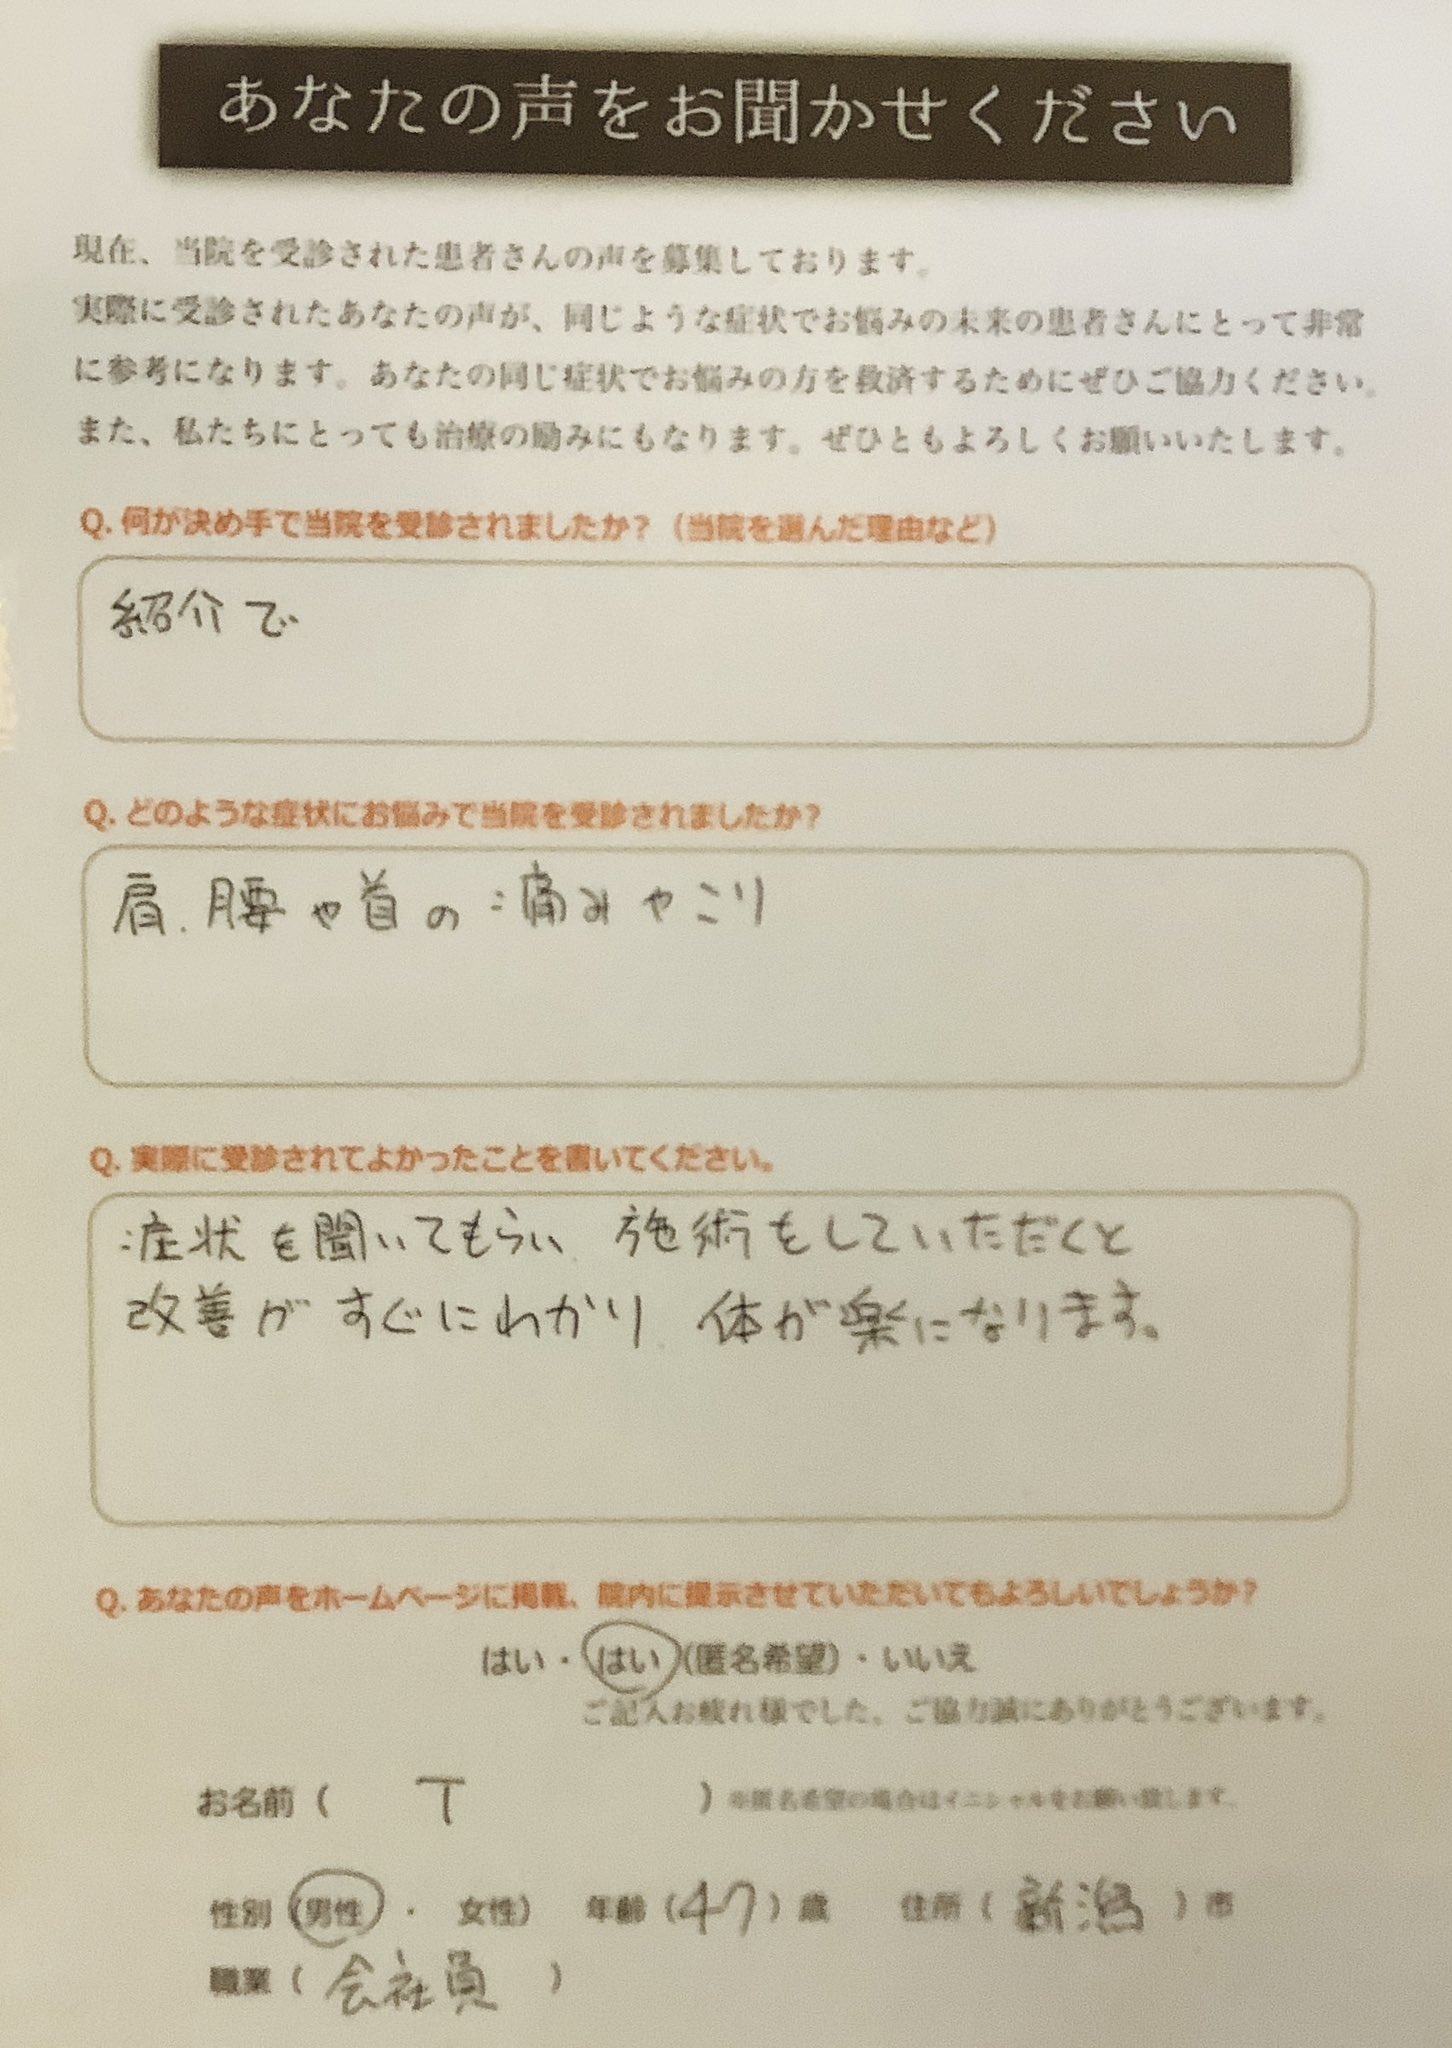 あなたの声をお聞かせください
現在、当院を受診された患者さんの声を募集しております。
実際に受診されたあなたの声が、同じような症状でお悩みの未来の患者さんにとって非常
に参考になります。あなたの同じ症状でお悩みの方を救済するためにぜひご協力ください。
また、私たちにとっても治療の励みにもなります。ぜひともよろしくお願いいたします。
Q. 何が決め手で当院を受診されましたか？（当院を選んだ理由など）
紹介で
Q. どのような症状にお悩みで当院を受診されましたか？
肩、腰や首の痛みやこり
Q. 実際に受診されてよかったことを書いてください。
症状を聞いてもらい、施術をしていただくと
改善がすぐにわかり、体が楽になります。
Q. あなたの声をホームページに掲載、院内に提示させていただいてもよろしいでしょうか？
はい・はい（匿名希望）・いいえ
ご記入お疲れ様でした。ご協力誠にありがとうございます。
お名前（ T ）※匿名希望の場合はイニシャルをお願い致します。
性別（男性 ・ 女性） 年齢（47）歳 住所（新潟）市
職業（会社員）